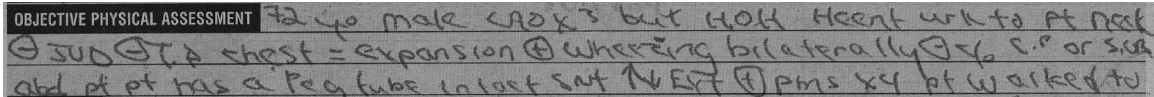 OBJECTIVE PHYSICAL ASSESSMENT 72 yo male CAOx3 but HOH Heent WNL to pt neck
⊖ JVD ⊖ T.D chest = expansion ⊕ wheezing bilaterally ⊖ c/o C.P or S.O.B
abd pt pt has a Peg tube intact SNT EXT ⊕ pms x4 pt walked to